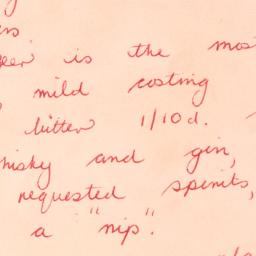 is the
mild costing
bitter 1/10d.
and gin,
requested spirits,
a "nip".